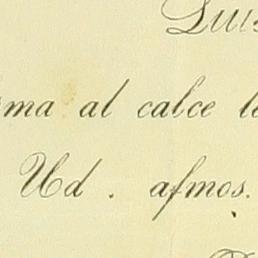 Luis
ma al calce le
Ud . afmos.